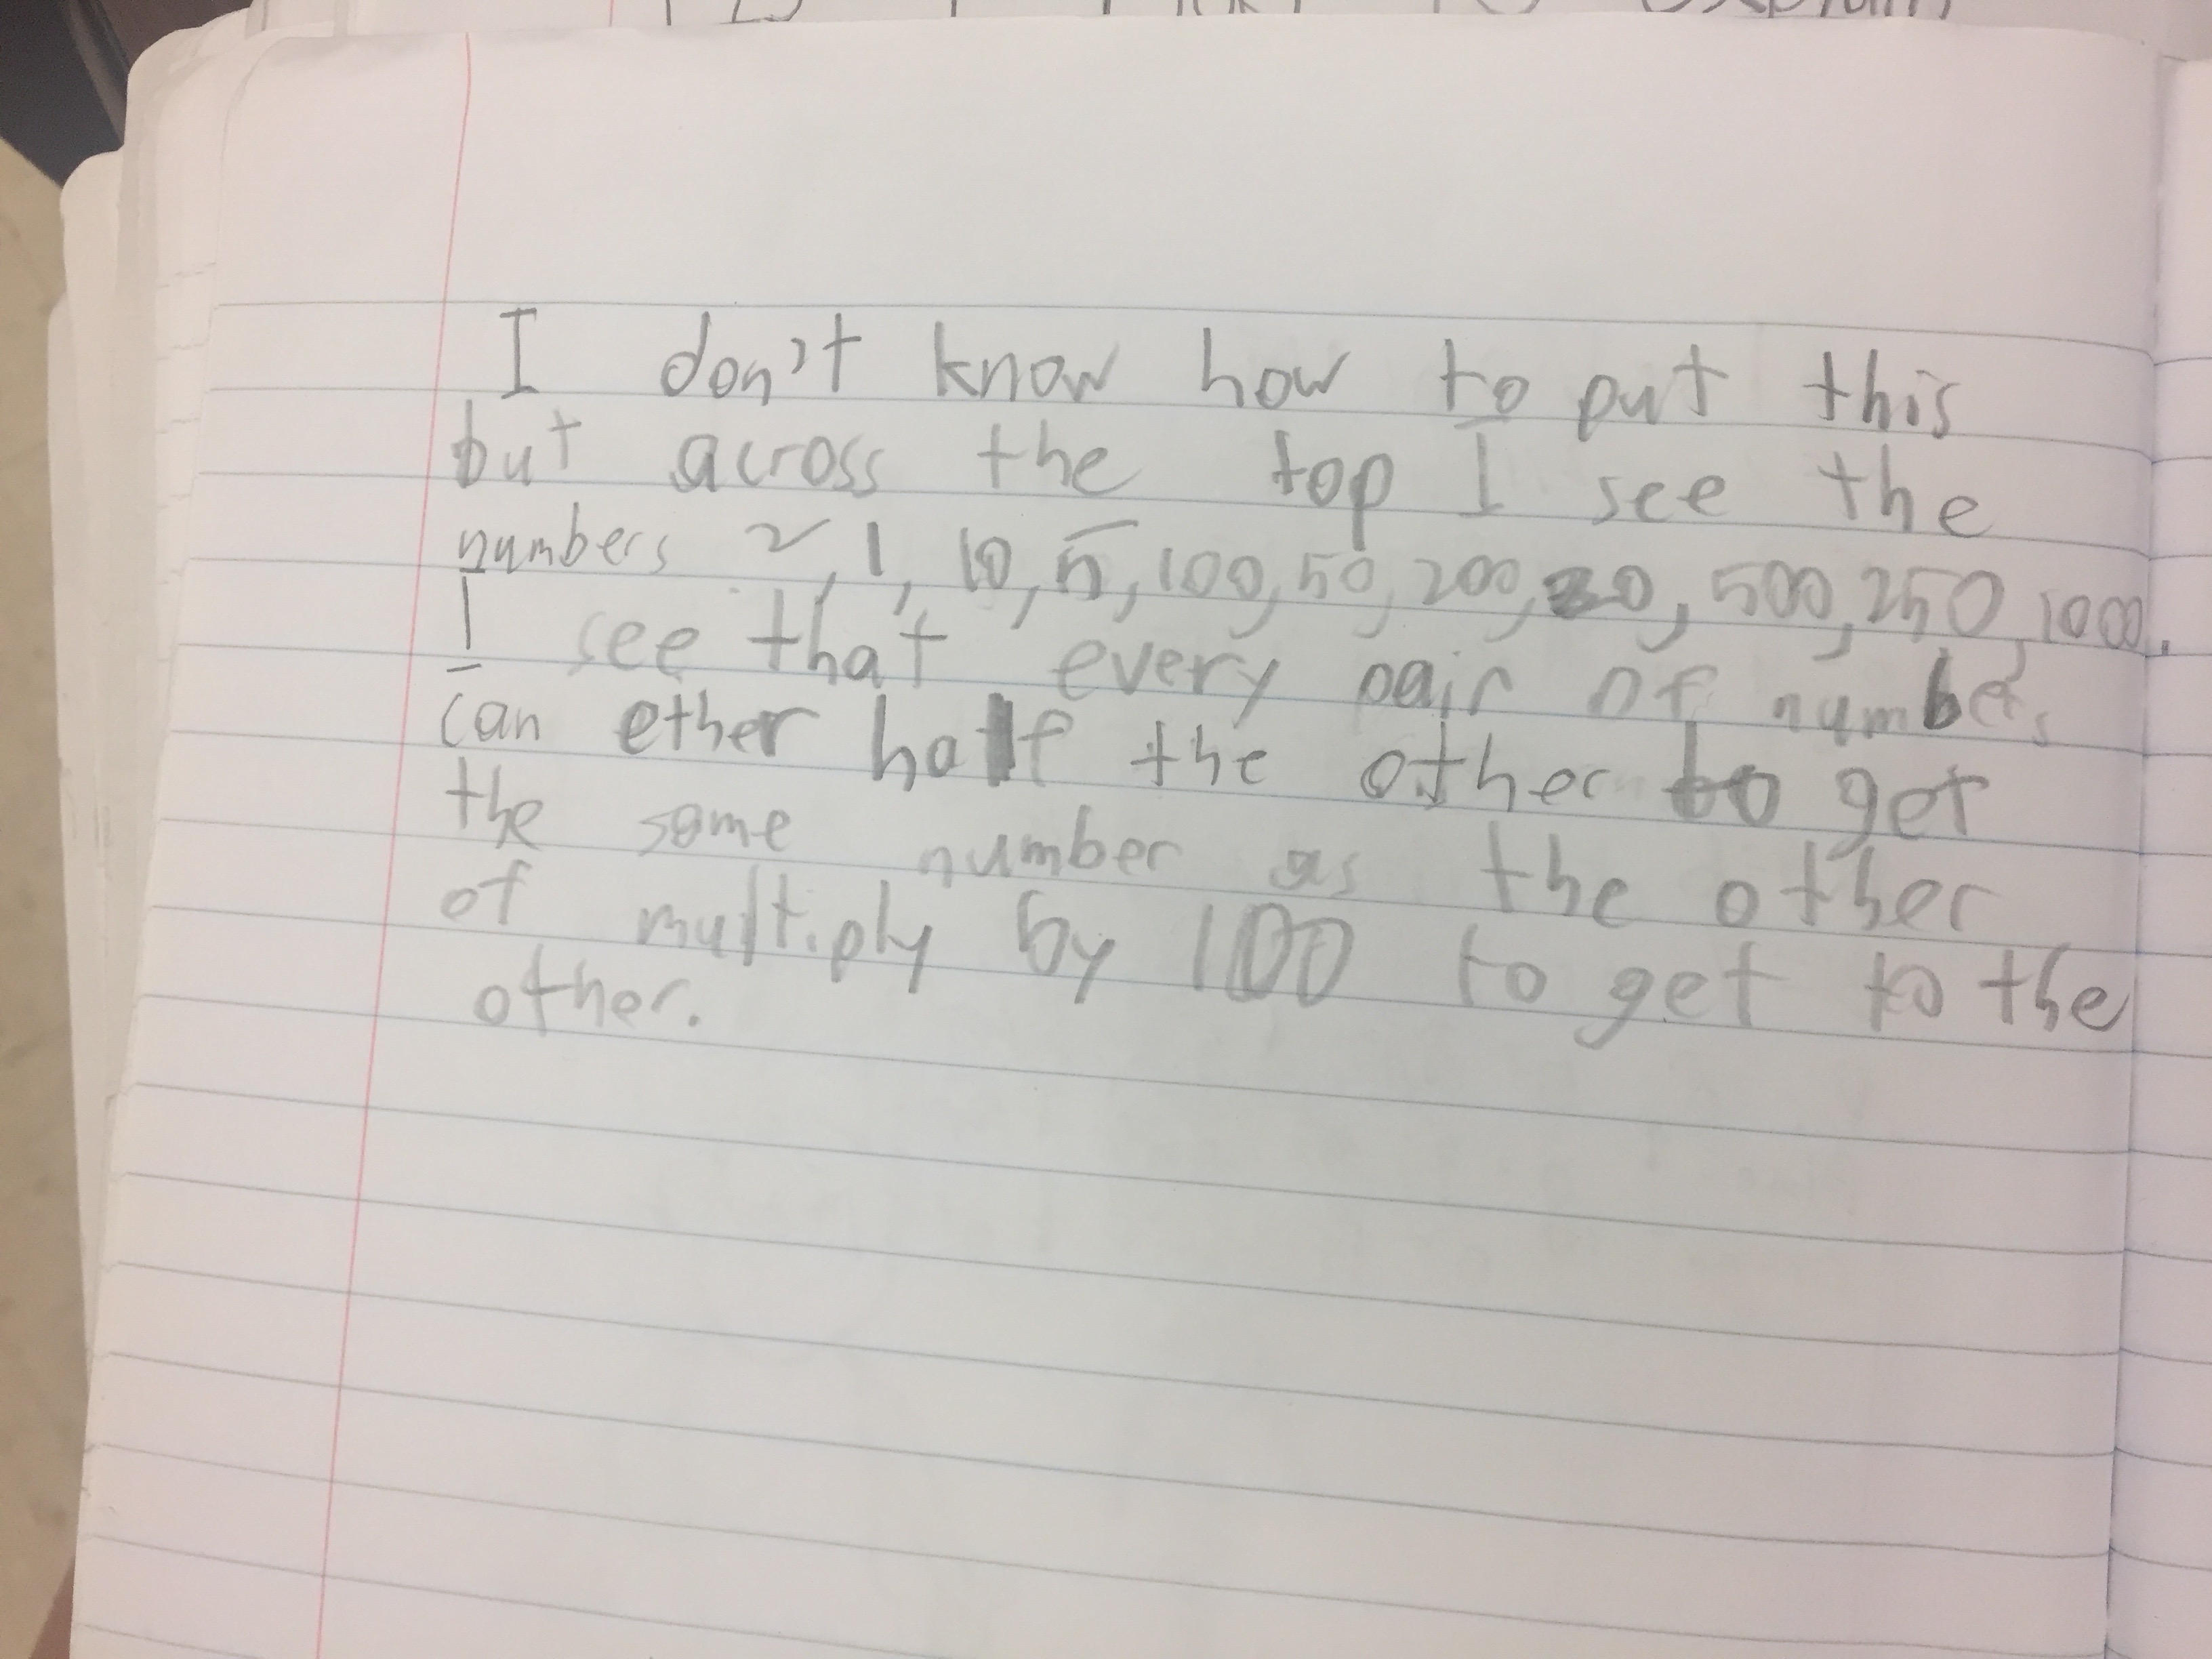 explain
I don't know how to put this
but across the top I see the
numbers 2, 1, 10, 5, 100, 50, 200, 20, 500, 250, 1000.
I see that every pair of numbers
can ether half the other to get
the same number as the other
of multiply by 100 to get to the
other.